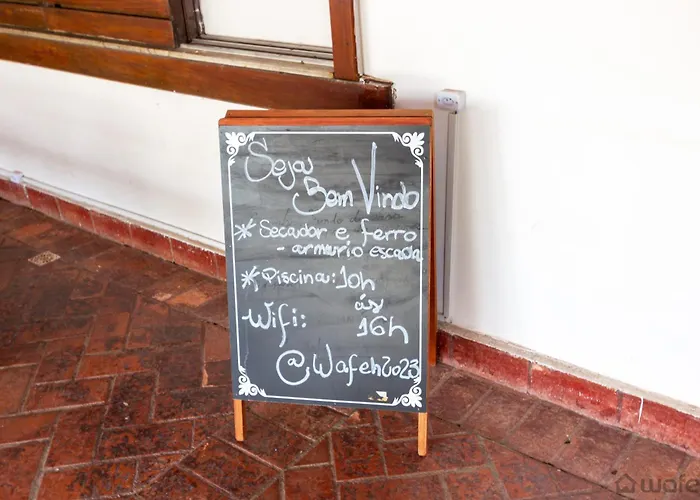 Seja
Bem Vindo
* Secador e ferro
- armário escada
* Piscina: 10h
ás
Wifi: 16h
@Wafeh2023
wafe